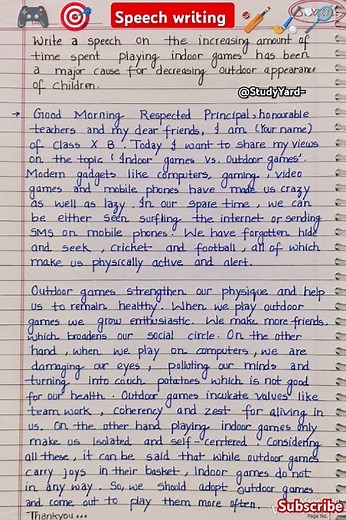 Speech writing
Write a speech on the increasing amount of
time spent playing indoor games has been
a major cause for decreasing outdoor appearance
of children.
@StudyYard-
→ Good Morning Respected Principal, honourable
teachers and my dear friends, I am (Your name)
of Class X B, Today I want to share my views
on the topic 'Indoor games vs. Outdoor games'.
Modern gadgets like computers, gaming, video
games and mobile phones have made us crazy
as well as lazy. In our spare time, we can
be either seen surfing the internet or sending
SMS on mobile phones. We have forgotten hide
and seek, cricket and football, all of which
make us physically active and alert.
Outdoor games strengthen our physique and help
us to remain healthy. When we play outdoor
games we grow enthusiastic. We make more friends,
which broadens our social circle. On the other
hand, when we play on computers, we are
damaging our eyes, polluting our minds and
turning into couch potatoes which is not good
for our health. Outdoor games inculcate values like
team work, coherency and zest for aliving in
us. On the other hand playing indoor games only
make us isolated and self-centered. Considering
all these, it can be said that while outdoor games
carry joys in their basket, Indoor games do not
in any way. So, we should adopt outdoor games
and come out to play them more often.
Thankyou...
Page No.
Subscribe